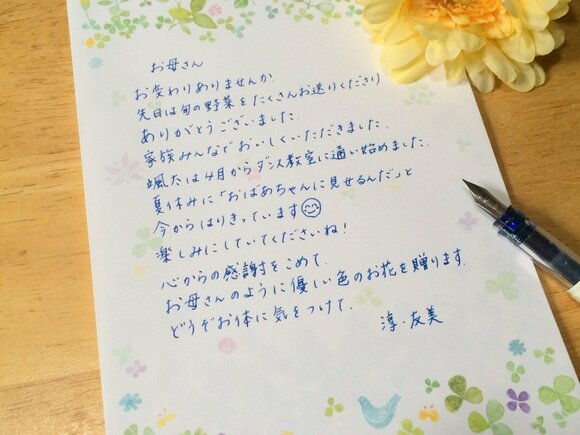 お母さん
お変わりありませんか.
先日は旬の野菜をたくさんお送りくださり
ありがとうございました.
家族みんなでおいしくいただきました.
颯太は4月からダンス教室に通い始めました.
夏休みに「おばあちゃんに見せるんだ」と
今からはりきっています😊
楽しみにしていてくださいね!
心からの感謝をこめて.
お母さんのように優しい色のお花を贈ります.
どうぞお体に気をつけて.
淳・友美